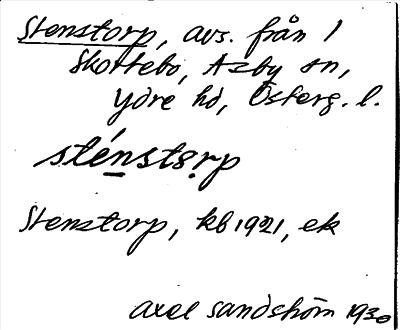 Stenstorp, avs. från 1
Skottebo, Asby sn,
Ydre hd, Österg. l.
sténstərp
Stenstorp, kb 1921, ek
Axel Sandström 1930